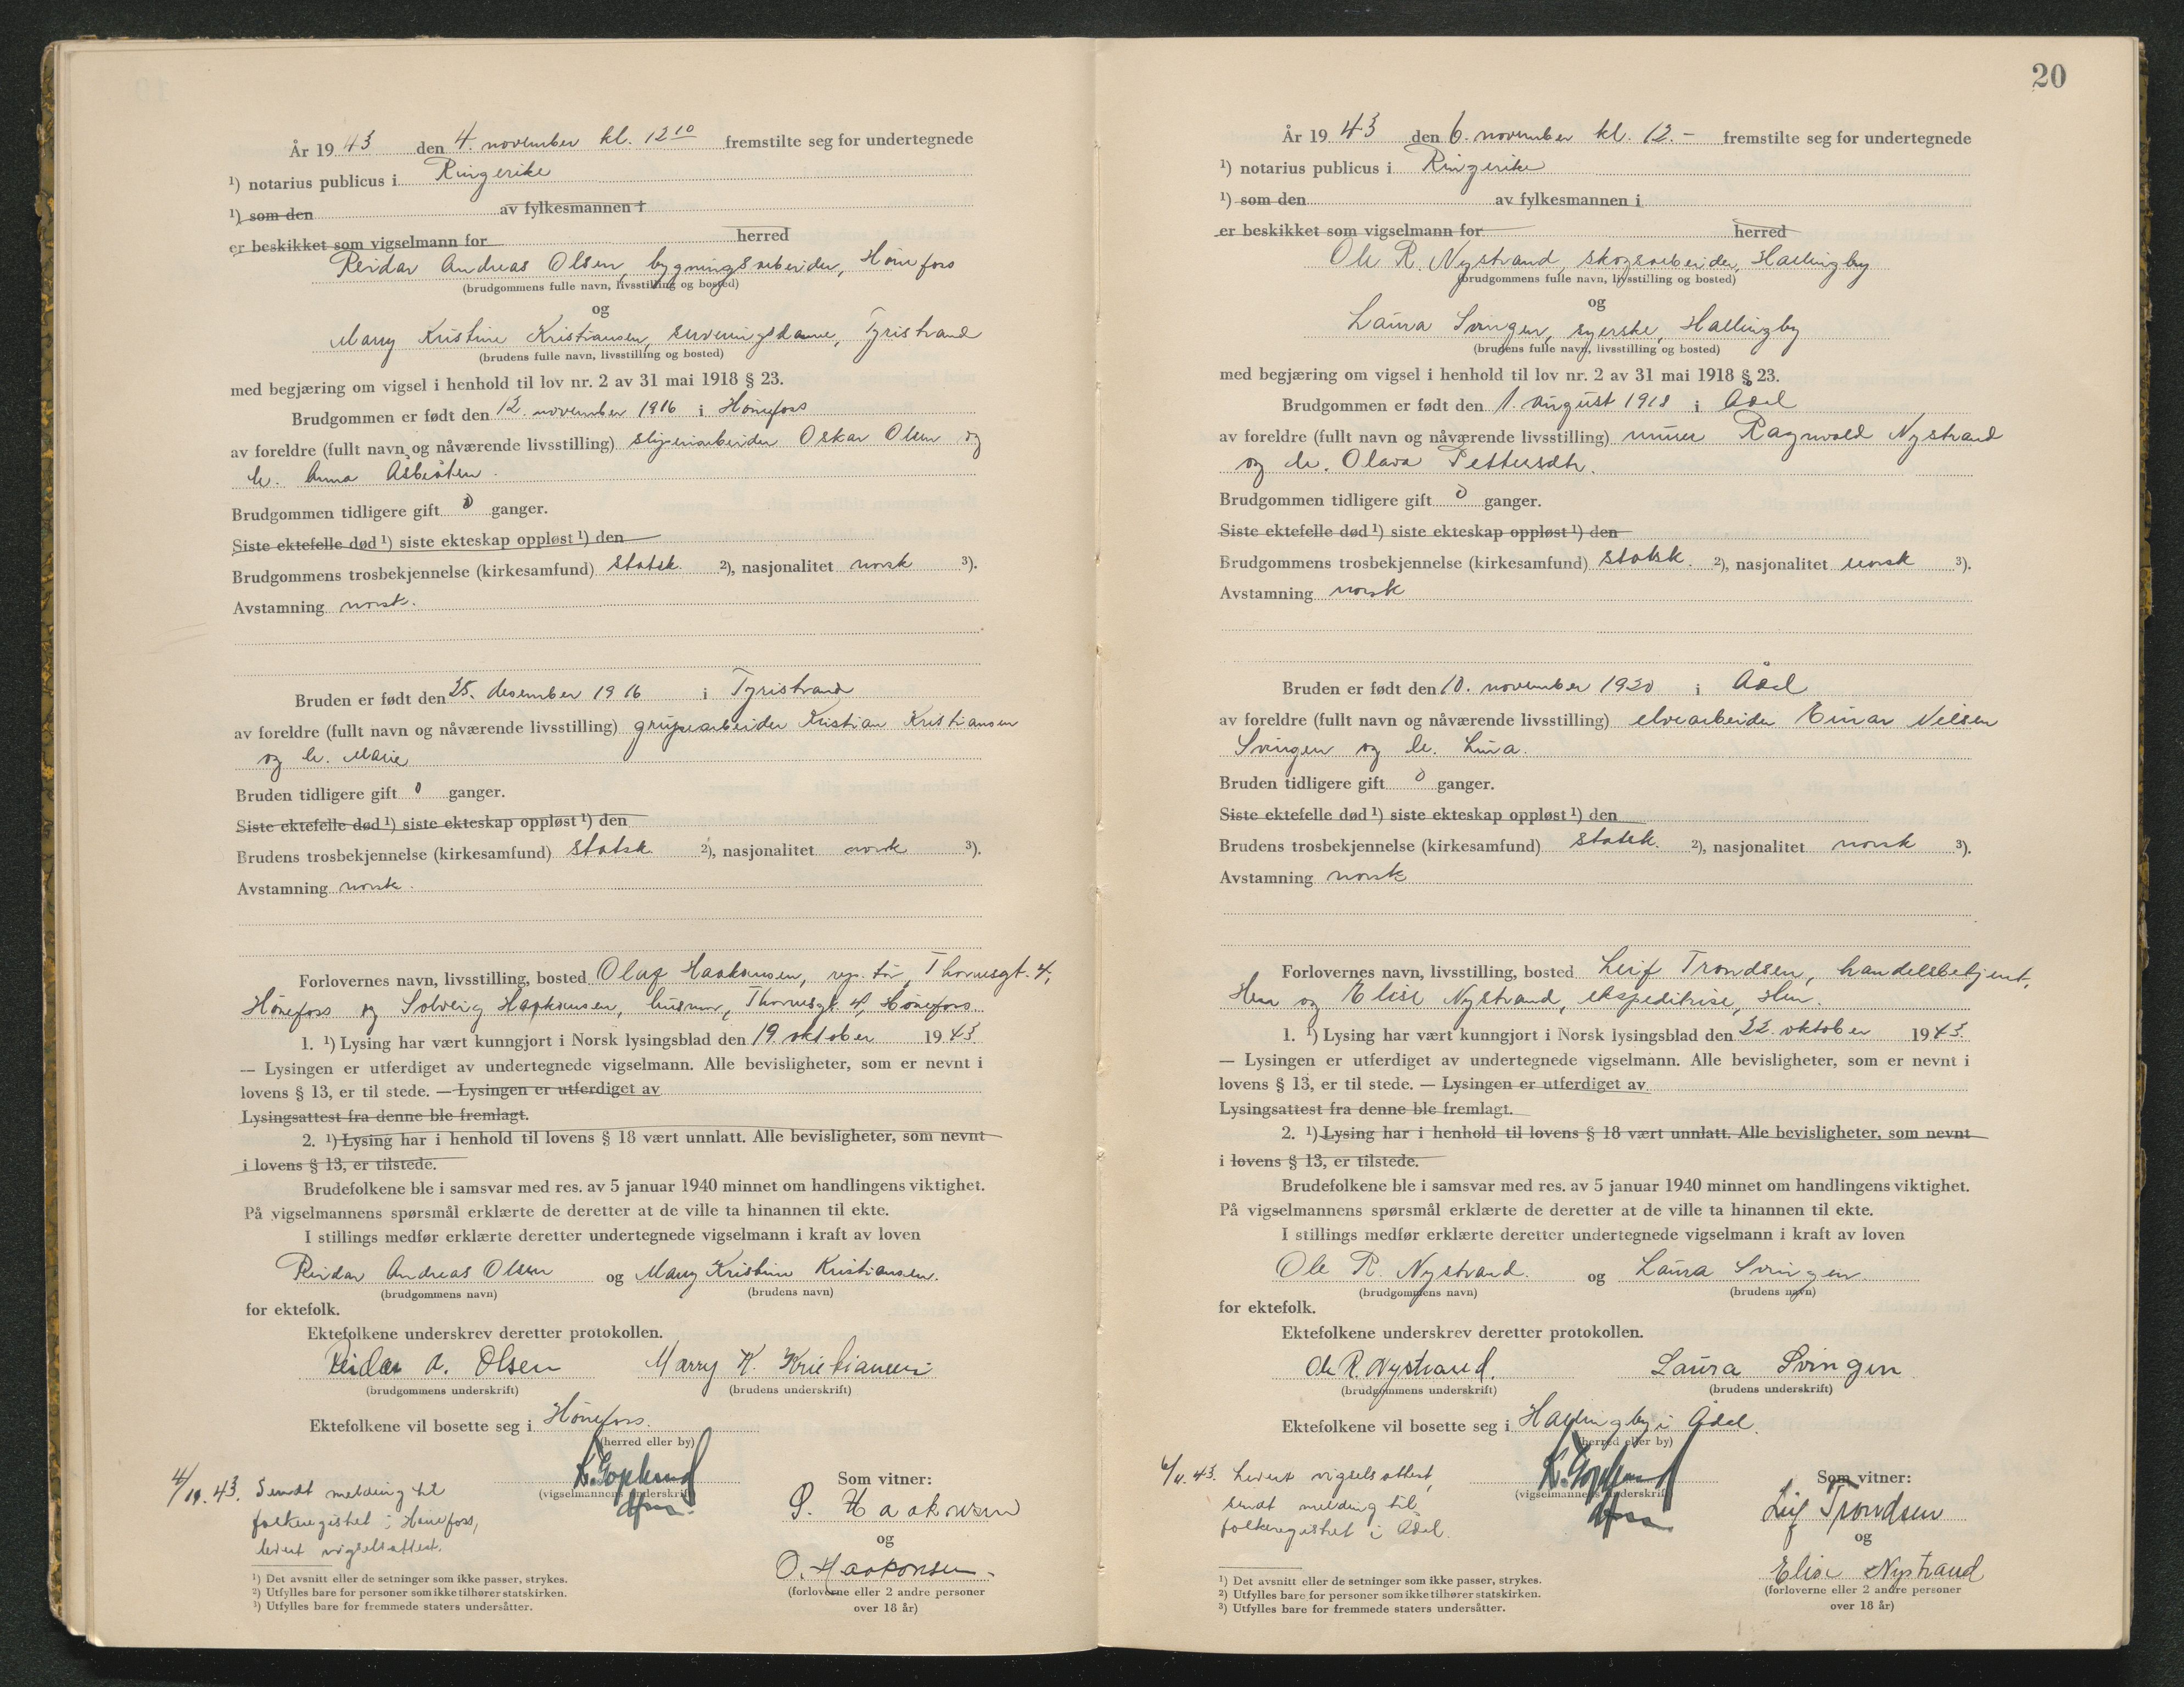 År 19 43 den 4. november kl. 12 10 fremstilte seg for undertegnede
¹) notarius publicus i Ringerike
¹) som den av fylkesmannen i
er beskikket som vigselmann for herred
Reidar Andreas Olsen, bygningsarbeider, Hønefoss
(brudgommens fulle navn, livsstilling og bosted)
og
Marry Kristine Kristiansen, serveringsdame, Tyristrand
(brudens fulle navn, livsstilling og bosted)
med begjæring om vigsel i henhold til lov nr. 2 av 31 mai 1918 § 23.
Brudgommen er født den 12. november 1916 i Hønefoss
av foreldre (fullt navn og nåværende livsstilling) sliperiarbeider Oskar Olsen og
h. Anna
Brudgommen tidligere gift 0 ganger.
Siste ektefelle død ¹) siste ekteskap oppløst ¹) den
Brudgommens trosbekjennelse (kirkesamfund) statsk. ²), nasjonalitet norsk ³).
Avstamning norsk.
Bruden er født den 25. desember 1916 i Tyristrand
av foreldre (fullt navn og nåværende livsstilling) grubearbeider Kristian Kristiansen
og h. Marie
Bruden tidligere gift 0 ganger.
Siste ektefelle død ¹) siste ekteskap oppløst ¹) den
Brudens trosbekjennelse (kirkesamfund) statsk. ²), nasjonalitet norsk ³).
Avstamning norsk.
Forlovernes navn, livsstilling, bosted Olaf Haakonsen, rep. tør, Thornesgt. 4,
Hønefoss og Solveig Haakonsen, husmor, Thornesgt. 4, Hønefoss.
1. ¹) Lysing har vært kunngjort i Norsk lysingsblad den 19. oktober 19 43
— Lysingen er utferdiget av undertegnede vigselmann. Alle bevisligheter, som er nevnt i
lovens § 13, er til stede. — Lysingen er utferdiget av
Lysingsattest fra denne ble fremlagt.
2. ¹) Lysing har i henhold til lovens § 18 vært unnlatt. Alle bevisligheter, som nevnt
i lovens § 13, er tilstede.
Brudefolkene ble i samsvar med res. av 5 januar 1940 minnet om handlingens viktighet.
På vigselmannens spørsmål erklærte de deretter at de ville ta hinannen til ekte.
I stillings medfør erklærte deretter undertegnede vigselmann i kraft av loven
Reidar Andreas Olsen og Marry Kristine Kristiansen.
(brudgommens navn) (brudens navn)
for ektefolk.
Ektefolkene underskrev deretter protokollen.
Reidar A. Olsen Marry K. Kristiansen
(brudgommens underskrift) (brudens underskrift)
Ektefolkene vil bosette seg i Hønefoss.
(herred eller by)
(vigselmannens underskrift)
Som vitner:
S. Haakonsen
og
O. Haakonsen
(forloverne eller 2 andre personer
over 18 år)
4/11.43. Sendt melding til
folkeregistret i Hønefoss,
levert vigselsattest.
¹) Det avsnitt eller de setninger som ikke passer, strykes.
²) Utfylles bare for personer som ikke tilhører statskirken.
³) Utfylles bare for fremmede staters undersåtter.
20
År 19 43 den 6. november kl. 12.- fremstilte seg for undertegnede
¹) notarius publicus i Ringerike
¹) som den av fylkesmannen i
er beskikket som vigselmann for herred
Ole R. Nystrand, skogsarbeider, Hallingby
(brudgommens fulle navn, livsstilling og bosted)
og
Laura Svingen, syerske, Hallingby
(brudens fulle navn, livsstilling og bosted)
med begjæring om vigsel i henhold til lov nr. 2 av 31 mai 1918 § 23.
Brudgommen er født den 1. august 1918 i Ådal
av foreldre (fullt navn og nåværende livsstilling) murer Ragnvald Nystrand
og h. Olava Pettersdtr.
Brudgommen tidligere gift 0 ganger.
Siste ektefelle død ¹) siste ekteskap oppløst ¹) den
Brudgommens trosbekjennelse (kirkesamfund) statsk. ²), nasjonalitet norsk ³).
Avstamning norsk
Bruden er født den 10. november 1920 i Ådal
av foreldre (fullt navn og nåværende livsstilling) elvearbeider Einar Nilsen
Svingen og h. Lina.
Bruden tidligere gift 0 ganger.
Siste ektefelle død ¹) siste ekteskap oppløst ¹) den
Brudens trosbekjennelse (kirkesamfund) statsk. ²), nasjonalitet norsk ³).
Avstamning norsk
Forlovernes navn, livsstilling, bosted Leif Trondsen, handelsbetjent,
Hen og Elise Nystrand, ekspeditrise, Hen.
1. ¹) Lysing har vært kunngjort i Norsk lysingsblad den 22. oktober 19 43.
— Lysingen er utferdiget av undertegnede vigselmann. Alle bevisligheter, som er nevnt i
lovens § 13, er til stede. — Lysingen er utferdiget av
Lysingsattest fra denne ble fremlagt.
2. ¹) Lysing har i henhold til lovens § 18 vært unnlatt. Alle bevisligheter, som nevnt
i lovens § 13, er tilstede.
Brudefolkene ble i samsvar med res. av 5 januar 1940 minnet om handlingens viktighet.
På vigselmannens spørsmål erklærte de deretter at de ville ta hinannen til ekte.
I stillings medfør erklærte deretter undertegnede vigselmann i kraft av loven
Ole R. Nystrand. og Laura Svingen.
(brudgommens navn) (brudens navn)
for ektefolk.
Ektefolkene underskrev deretter protokollen.
Ole R. Nystrand. Laura Svingen
(brudgommens underskrift) (brudens underskrift)
Ektefolkene vil bosette seg i Hallingby i Ådal.
(herred eller by)
(vigselmannens underskrift)
Som vitner:
Leif Trondsen
og
Elise Nystrand
(forloverne eller 2 andre personer
over 18 år)
6/11.43. Levert vigselsattest,
sendt melding til
folkeregistret i Ådal.
¹) Det avsnitt eller de setninger som ikke passer, strykes.
²) Utfylles bare for personer som ikke tilhører statskirken.
³) Utfylles bare for fremmede staters undersåtter.